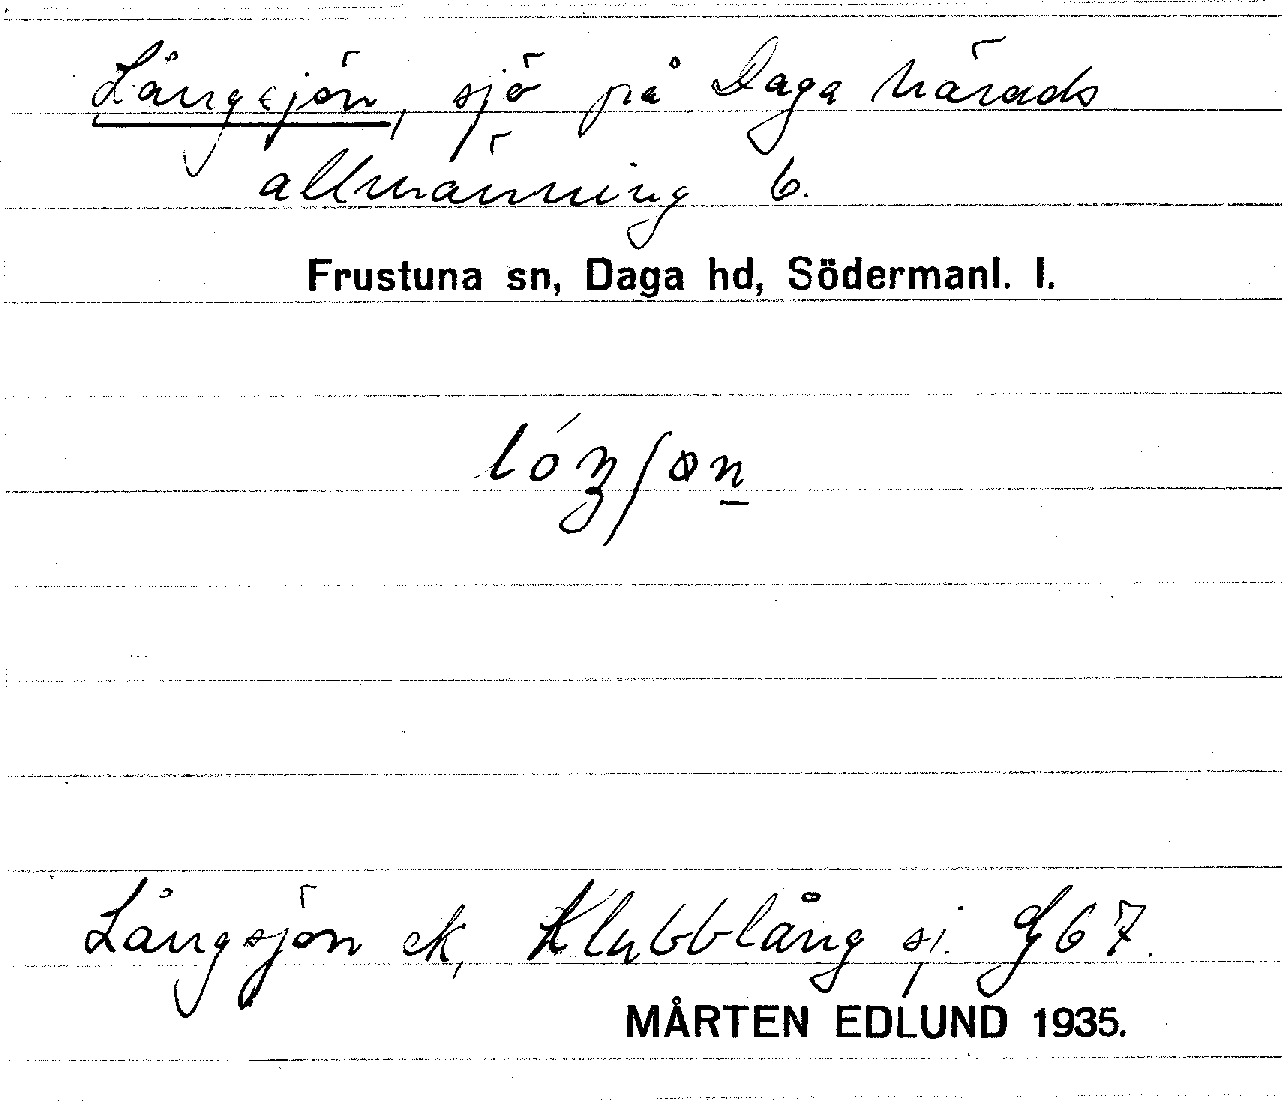 Långsjön, sjö på Daga härads
allmänning 6.
Frustuna sn, Daga hd, Södermanl. l.
Långsjön ek, Klubblång sj. G67.
MÅRTEN EDLUND 1935.